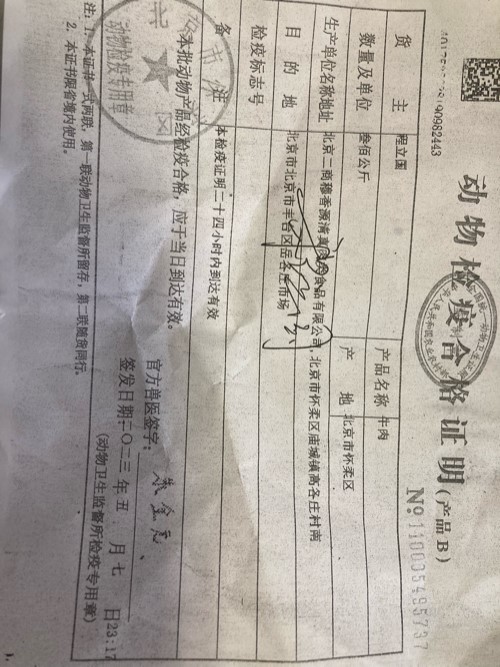 动物检疫合格证明(产品 B)
№1100354957​37
货 主 程立国
产品名称 牛肉
数量及单位 叁佰公斤
产 地 北京市怀柔区
生产单位名称地址 北京二商穆香源清真肉类食品有限公司,北京市怀柔区庙城镇高各庄村南
目 的 地 北京市北京市丰台区岳各庄市场
检疫标志号
备 注 本检疫证明二十四小时内到达有效
本批动物产品经检疫合格,应于当日到达有效。
官方兽医签字:
签发日期:二〇二三 年 五 月 七 日23:17
(动物卫生监督所检疫专用章)
动物检疫专用章
注:1. 本证书一式两联,第一联动物卫生监督所留存,第二联随货同行。
2. 本证书限省境内使用。